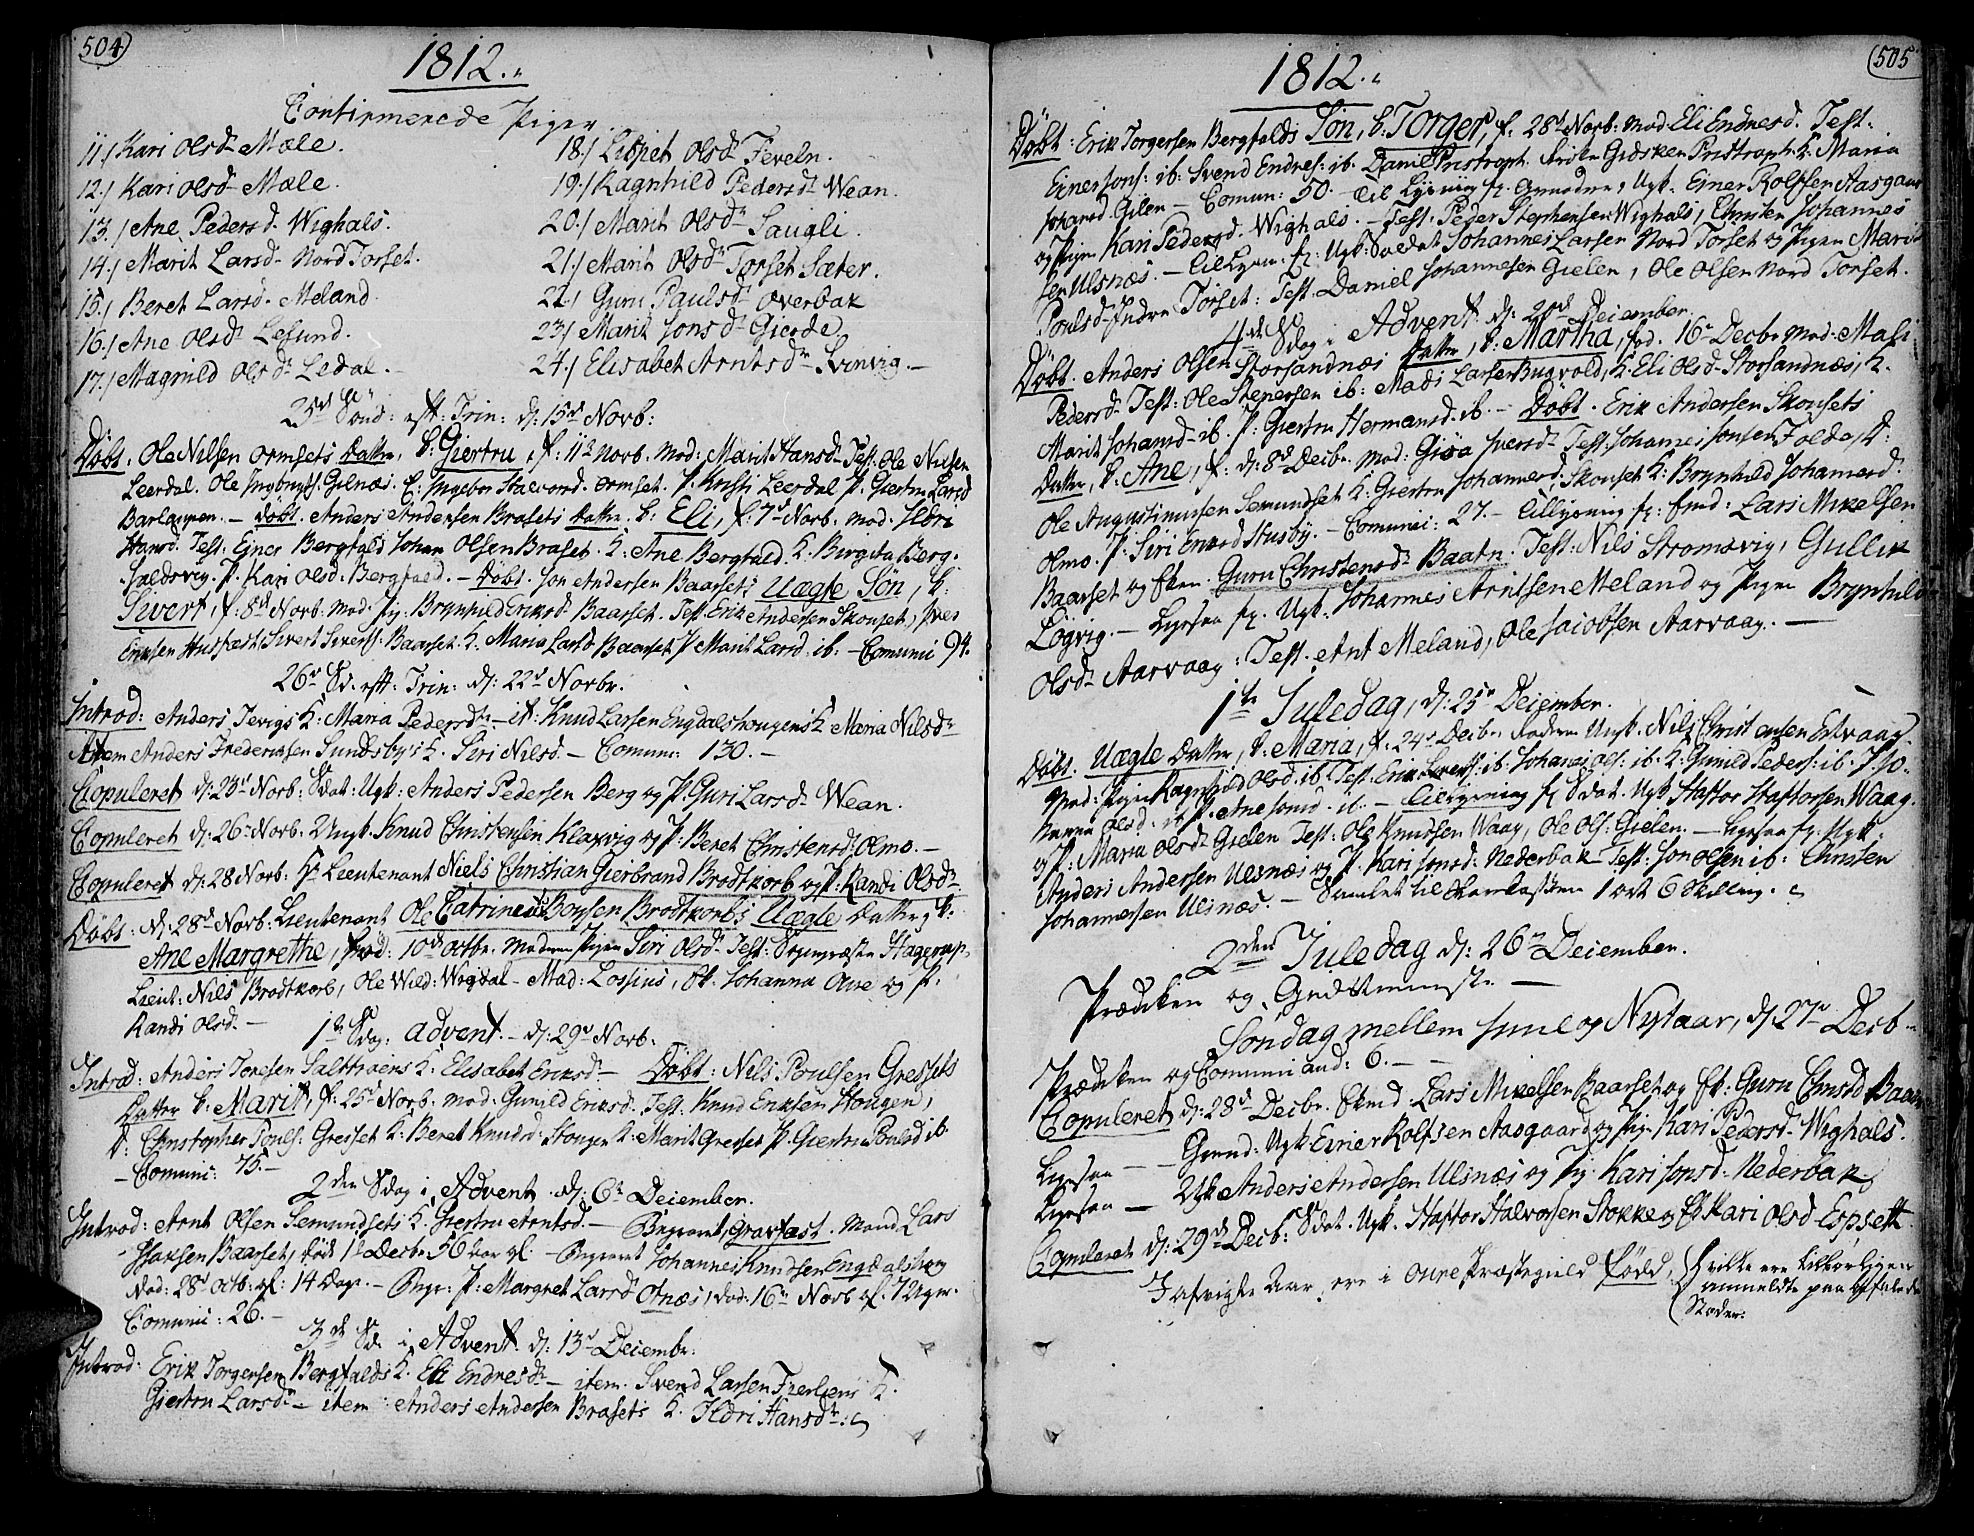 504
1812.
Confirmerede Piger
11./ Kari Olsdr Mæle.
12./ Kari Olsdr Mæle.
13./ Ane Pedersd. Wighals.
14./ Marit Larsdr Nord Torset.
15./ Beret Larsd. Meland.
16./ Ane Olsdr Lesund.
17./ Magnild Olsdr Ledal.
18./ Lispet Olsdr Feveln.
19./ Ragnhild Pedersdr Wean.
20./ Marit Olsdr Saugli.
21./ Marit Olsdr Torset Sæter.
22./ Guru Paulsdr Overbak
23./ Marit Jonsdr Gierde
24./ Elisabet Arntsdr Svinvig.
25de Sønd: eft: Trin: d: 15de Novb:
Döbt. Ole Nilsen Ormsets Datter, b: Giertru, f: 11te Novb. Mod: Marit Hansd. Test. Ole Nilsen
Leerdal. Ole Gilnæs. K: Ingebor Ormset. P. Leerdal P. Giertru Larsd
Barlaupen. — Döbt. Anders Andersen Brasets Datter. b: Eli, f: 7de Novb. Mod. Ildri
Hansd. Test: Einer Bergfald Johan Olsen Braset. K: Ane Bergfald. K. Birgita Berg-
Saldsvig. P. Kari Olsd. Bergfald. — Döbt. Jon Andersen Baarsets Uægte Sön, b:
Sivert, f: 8de Novb. Mod. Pig: Brynhild Eriksdr Baarset. Test. Erik Andersen Skonset, Iver
Eriksen Sivert Siverts: Baarset K. Maria Larsd Baarset P Marit Larsd. ib. — Comuni 94.
26de Sd. eft: Trin: d: 22de Novbr.
Introd: Anders Tevigs K: Maria Pedersdr — it: Knud Larsen Engdalshougens K Maria Nilsdr
Item Anders Frederiksen Sundsby's K. Siri Nilsd — Comun: 130. —
Copuleret d: 23de Novb: Sdat: Ugk: Anders Pedersen Berg og P: Guri Larsdr Wean.
Copuleret d: 26de Novb. Ungk. Knud Christensen Klaxvig og P: Beret Christensd. Olmo. —
Copuleret d: 28 Novb: Hr Lieutenant Niels Christian Gierbrand Brodtkorb og P. Randi Olsdr
Döbt: d: 28de Novb: Lieutenant Ole Catrineus Boysen Brodtkorbs Uægte Datter b:
Ane Margrethe, föd: 10de Octbr. Moderen Pigen Siri Olsdr Test: Sognepræsten Hagerup,
Lieut: Nils Brodtkorb, Ole Wild: Wogdal — Mad: Lossius, Johanna Aure og P.
Randi Olsd. —
1te Sdag: Advent. — d: 29de Novb:
Introd: Anders Toresen Salttröens K. Elisabet Eriksd. — Döbt: Nels Poulsen Gresets
Datter b: Marit, f: 25de Novb. Mod: Gunild Eriksd. Test. Knud Eriksen Stougen,
D: Christopher Pouls: Greset K: Beret Knudsd: Stougen K. Marit Greset P. Giertru Poulsd ib
— Comuni: 75. —
2den Sdag i Advent. d: 6te December.
Introd: Arnt Olsen Semundsets K. Giertru Arntsd. — Begravet, gravfæst. Mand Lars
Isaksen Baarset, död 1te Decbr 56 Aar gl. — Begravet Johannes Knudsen Engdalshoug
död: 28de Octb: gl: 14 Dage. — Begr. P. Margret Larsd Otnæs, död: 16de Novb gl. 7 Uger.
Comuni: 26. —
3de Sd. i Advent. d. 13de Decembr.
Introd: Erik Torgersen Bergfalds K. Eli Endresdr — item. Svend Larsen K.
Giertru Larsdr — item: Anders Andersen Brasets K. Ildri Hansdr:
505
1812.
Döbt: Erik Torgersen Bergfalds Sön, b: Torger, f: 28de Novb: Mod Eli Endresd. Test:
Einer Jons: ib: Svend Endres: ib: Daniel Pristroph. Gidsken Pristroph. K: Maria
Johansd. Gilen — Comun: 50. — Til Lysning Ugk. Einer Rolfsen Aasgaar
og Pigen Kari Pedersd. Wighals. — Test. Peder Stephensen Wighals, Christen Johannes
sen Ulsnæs. — Ugk: Soldat Johannes Larsen Nord Torset og Pigen Marit
Poulsd Indre Torset: Test. Daniel Johannesen Gielen, Ole Olsen Nord Torset.
4de Sdag i Advent d: 20de December.
Döbt. Anders Olsen Storsandnæs Datter, b: Martha, föd. 16de Decbr Mod: Mali
Pedersdr Test: Ole Stenersen ib: Mads Larsen Bugvold, K. Eli Olsd. Storsandnæs, K.
Marit Johansd. ib. P: Giertru Hermansd. ib. — Döbt. Erik Andersen Skonsets
Datter, b. Ane, f: d: 8de Decbr. Mod: Gisa Iversdr Test: Johannes Jonsen Tolde, D:
Ole Augustinusen Semundset K: Giertru Johannesd: Skonset K: Brynhild Johannesd.
Olmo. P: Siri Husby. — Comuni: 27. — Tillysning fr: Emd: Lars Mikelsen
Baarset og Eken. Guru Christensdr Baatn. Test: Nils Stromsvig, Gullik
Logvig. — Ligesaa fr. Ugk. Johannes Arntsen Meland og Pigen Brynhild
Olsdr Aarvaag: Test. Ant Meland, Ole Jacobsen Aarvaag. —
1te Juledag, d: 25de December.
Döbt. Uægte Datter, b: Maria, f: 24de Decbr Faderen Ungk. Nils Christensen Estvaag
Mod: Pigen Ragnhild Olsd. ib. Test. Erik Iverss: ib. Johannes Ols: ib. K: Gunild Peders: ib. P. Jo-
hanna Olsd. ib P. Ane ib. — Tillysning fr Sdat. Ugk Haftor Haftorsen Waag.
og P: Maria Olsdr Gielen Test: Ole Knudsen Waag, Ole Ols: Gielen. — Ligesaa fr: Ugk:
Anders Andersen Ulsnæs og P. Kari Jonsd: Nederbak Test: Jon Olsen ib: Christen
Johannesen Ulsnæs. — Samlet til 1 ort 6 Skilling.
2den Juledag d: 26de December.
Prædiken og Gudstieneste. —
Söndag mellem Juul og Nytaar, d: 27de Decb
Prædiken og Communicand: 6. —
Copuleret d: 28de Decbr. Ekmd. Lars Mikelsen Baarset og Ek: Guru Christd Baatn
Ligesaa — — Grend: Ugk: Einer Rolfsen Aasgaard og Pige Kari Pedersd. Wighals.
Ligesaa — Ugk Anders Andersen Ulsnæs og Pig. Kari Jonsd. Nederbak
Copuleret d: 29de Decb: Sdat. Ugk. Haftor Halvorsen Stokke og Kari Olsd Espsett
I afvigte Aar, ere i Oure Præstegield Född, hvilke ere tilbørligen
anmeldte paa befalede
Stæder.